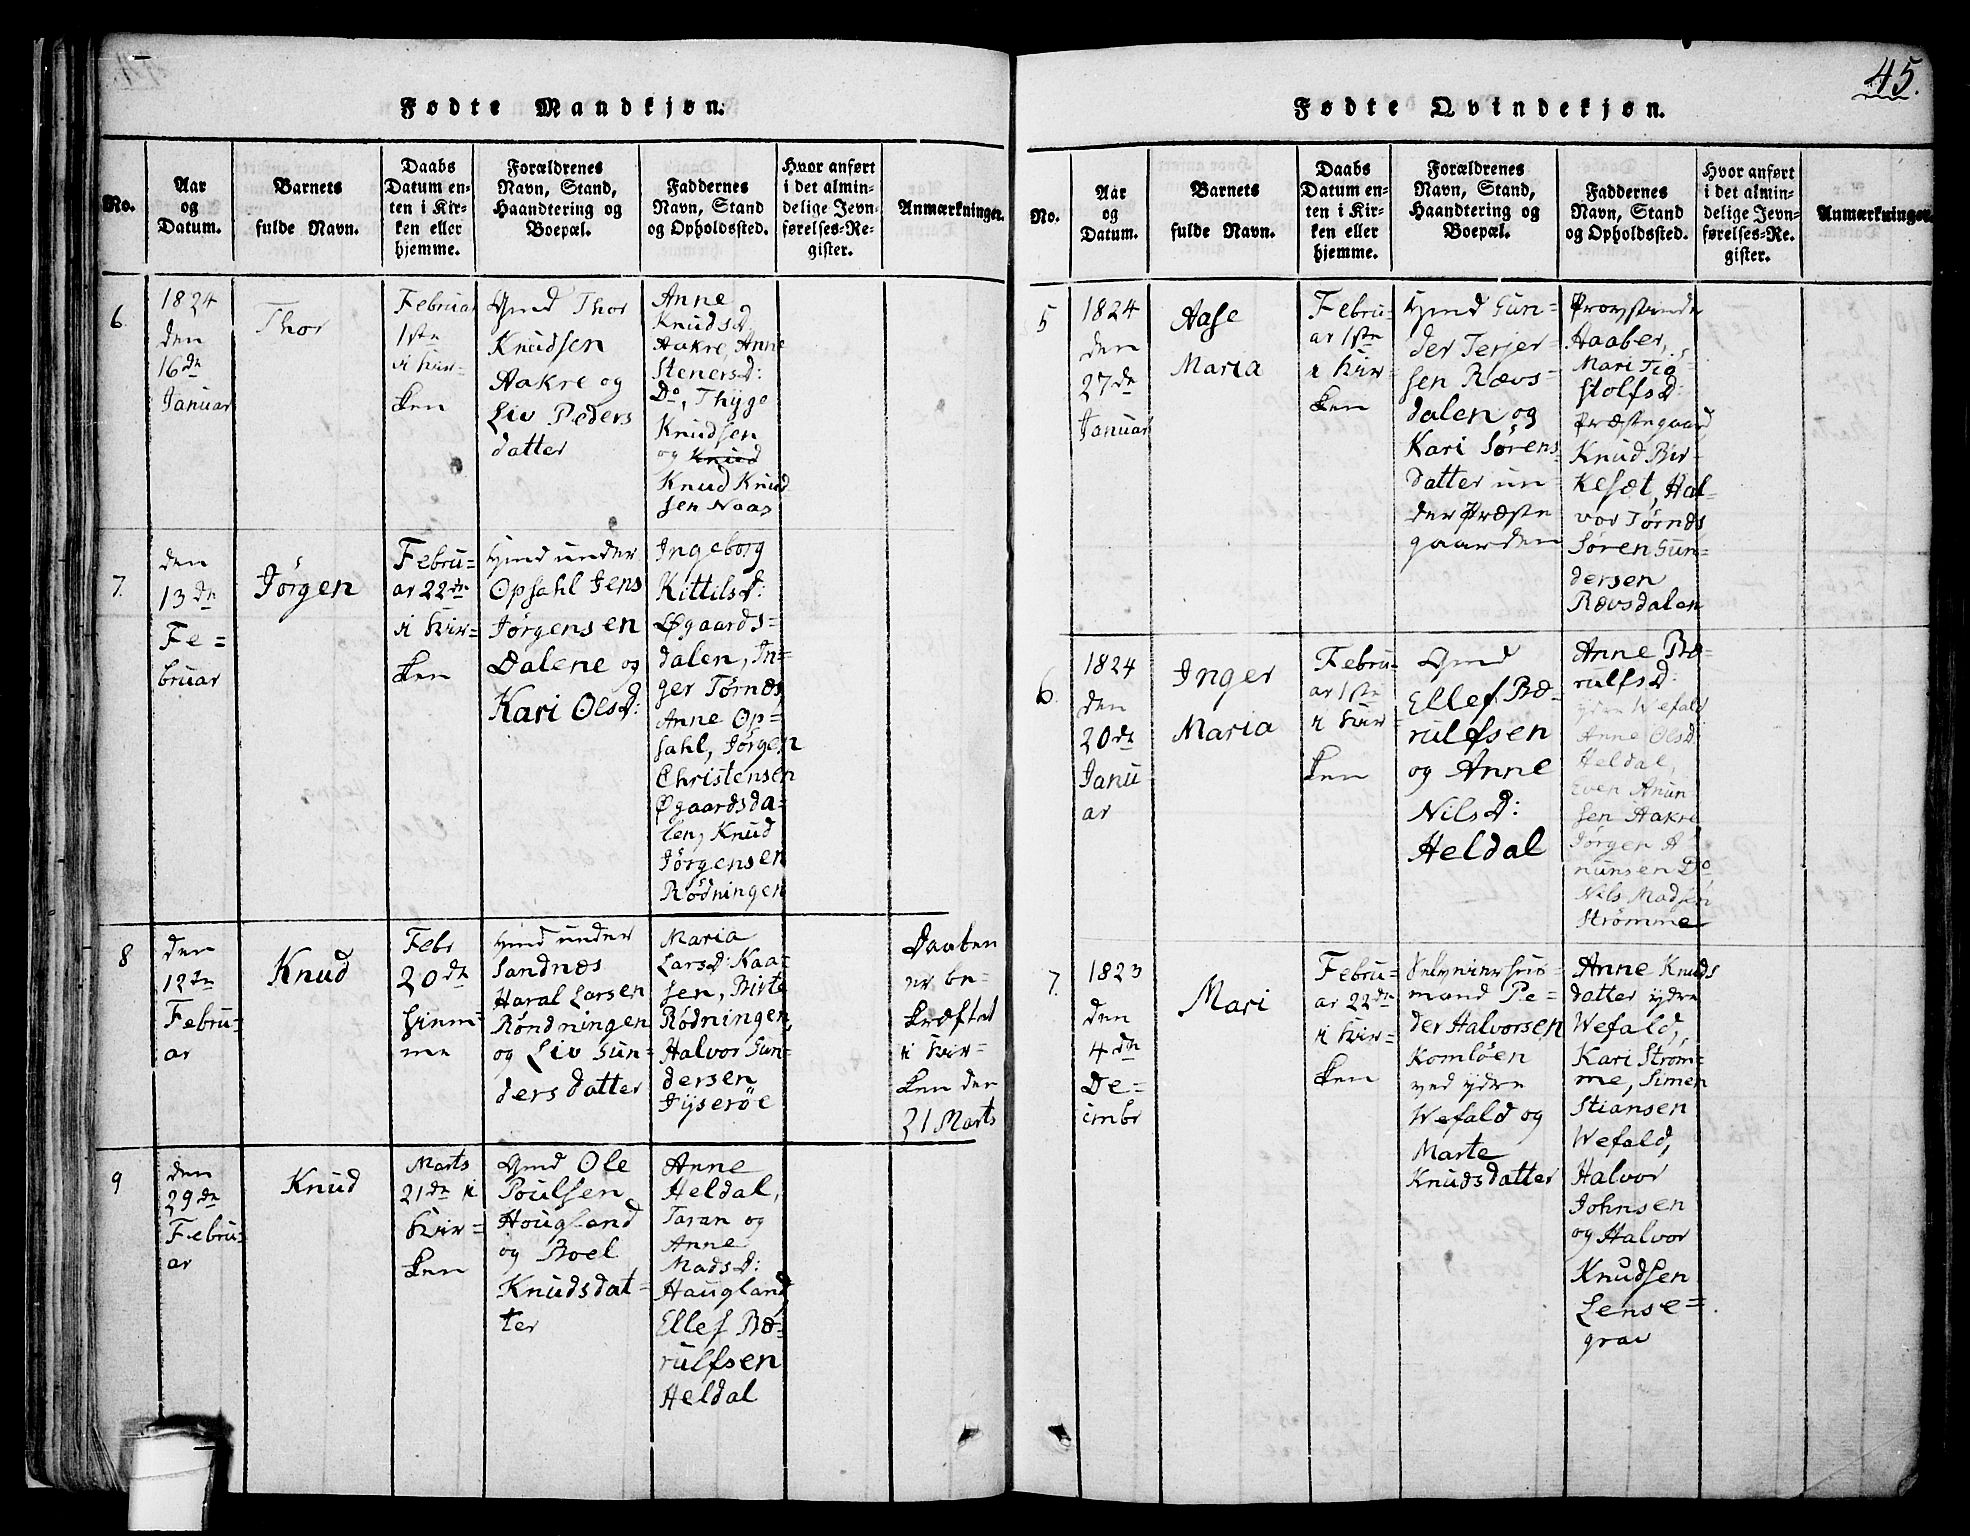 45.
Fødte Mandkjøn.
No.
Aar
og
Datum.
Barnets
fulde Navn.
Daabs
Datum en-
ten i Kir-
ken eller
hjemme.
Forældrenes
Navn, Stand,
Haandtering og
Boepæl.
Faddernes
Navn, Stand
og Opholdssted.
Hvor anført
i det almin-
delige Jevn-
førelses-Re-
gister.
Anmærkninger.
6.
1824
den
16de
Januar
Thor
Februar
1ste
i Kir-
ken
Gmd Thor
Knudsen
Aakre og
Liv Peders
datter
Anne
KnudsD
Aakre, Anne
StenersD:
Do, Thyge
Knudsen
og Knud
Knud Knud
sen Naas
7.
den
13de
Fe-
bruar
Jørgen
Febru-
ar 22de
i Kir-
ken
Hmd under
Opsahl Jens
Jørgensen
Dalene og
Kari OlsD:
Ingeborg
KittilsD:
Øgaards-
dalen, In-
ger Tørnes,
Anne Op-
sahl, Jørgen
Christensen
Øgaardsda-
len, Knud
Jørgensen
Rødningen
8
den
12te
Febru-
ar
Knud
Febr
20de
hiem-
me
Hmd under
Sandnæs
Haral Larsen
Røndningen
og Liv Gun-
ders datter
Maria
LarsD: Kaa-
sen, Birte
Rødningen,
Halvor Gun-
dersen
Jyserøe
Daaben
er be-
kræftet
i Kir-
ken den
21 Marts
9
den
29de
Febru-
ar
Knud
Marts
21de i
Kir-
ken
Gmd Ole
Poulsen
Hougland
og Boel
Knudsdat-
ter
Anne
Heldal,
Taran og
Anne
MadsD:
Haugland,
Ellef Bæ-
rulfsen
Heldal
Fødte Qvindekjøn.
No.
Aar
og
Datum.
Barnets
fulde Navn.
Daabs
Datum en-
ten i Kir-
ken eller
hjemme.
Forældrenes
Navn, Stand,
Haandtering og
Boepæl.
Faddernes
Navn, Stand
og Opholdssted.
Hvor anført
i det almin-
delige Jevn-
førelses-Re-
gister.
Anmærkninger.
5
1824
den
27de
Januar
Aase
Maria
Febru-
ar 1ste
i Kir-
ken
Hmd Gun-
der Terjer
sen Rævs-
dalen og
Kari Sørens-
datter un-
der Præste
gaarden
Provstinde
Aaaber,
Mari Tiø-
stolfsD:
Præstegaard
Knud Bir-
kesæt, Hal-
vor Tørnes
Søren Gun-
dersen
Rævsdalen
6
1824
den
20de
Janu
ar
Inger
Maria
Febru-
ar 1ste
i Kir-
ken
Gmd
Ellef Bæ-
rulfsen
og Anne
NilsD:
Heldal
Anne Bæ-
rulfsD:
ydre Wefald
Anne OlsD:
Heldal,
Even Anun
sen Aakre
Jørgen A
nunsen Do
Nils Madsen
Strømme
7.
1823
den
4de
De-
cmbr
Mari
Febru-
ar 22de
i Kir-
ken
Selveierhus-
mand Pe-
der Halvorsen
Komløen
ved ydre
Wefald og
Marte
Knudsdatter
Anne Knuds
datter ydre
Wefald,
Kari Strøm-
me, Simen
Stiansen
Wefald,
Halvor
Johnsen
og Halvor
Knudsen
Lense-
grav